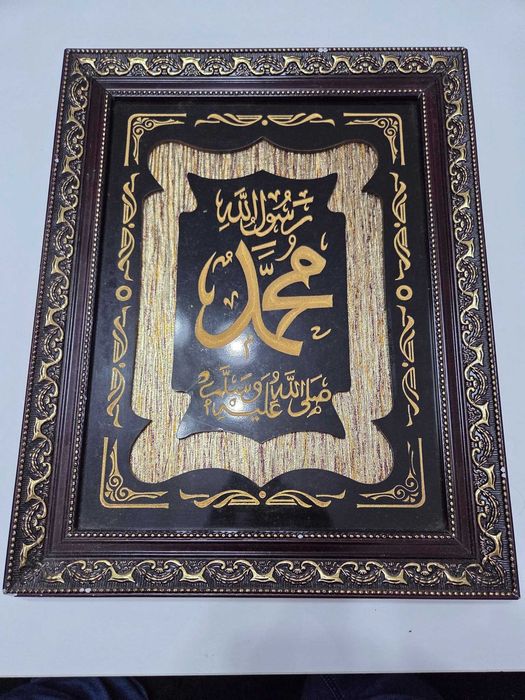 رَسُولُ اللَّهِ
مُحَمَّد
صَلَّى اللَّهُ عَلَيْهِ وَسَلَّمَ